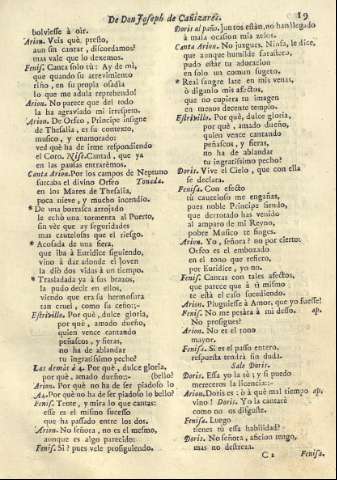 De Don Joseph de Cañizares.
19
bolviesse à oir.
Arion. Veis què, presto,
aun sin cantar, discordamos?
mas vale que lo dexemos.
Fenis. Canta solo tù: Ay de mi,
que quando su atrevimiento
riño, en su propia osadia
lo que me adula reprehendo!
Arion. No parece que del todo
la ha agraviado mi irrespeto.
Arion. De Orfeo, Principe insigne
de Thesalia, es su contexto,
musico, y enamorado:
ved què ha de irme respondiendo
el Coro. Nise. Cantad, que ya
en las pausas entrarèmos.
Canta Arion. Por los campos de Neptuno
surcaba el divino Orfeo Tonada.
en los Mares de Thesalia,
poca nieve, y mucho incendio.
* De una borrasca arrojado
le echò una tormenta al Puerto,
sin vèr que ay seguridades
mas cautelosas que el riesgo.
* Acosada de una fiera,
que iba à Euridice siguiendo,
vino à dàr adonde el joven
la diò dos vidas à un tiempo.
* Trasladada yà à sus brazos,
la pudo decir en ellos,
viendo que era su hermosura
tan cruel, como su ceño:
Estrivillo. Por què, dulce gloria,
por què, amado dueño,
quien vence cantando
peñascos, y fieras,
no ha de ablandar
tu ingratissimo pecho?
Las demàs à 4. Por què, dulce gloria,
por què, amado dueño: (bello?
Arion. Por què no ha de ser piadoso lo
A 4. Por què no ha de ser piadoso lo bello?
Fenis. Tente, y mira lo que cantas:
esse es el mismo sucesso
que ha passado entre los dos.
Arion. No señora, no es el mesmo,
aunque es algo parecido:
Fenis. Si? pues vele prosiguiendo.
Doris al paño. Juntos estàn, no han llegado
à mala ocasion mis zelos.
Canta Arion. No juzgues, Ninfa, le dice,
que aunque humilde
pudo estàr tu adoracion
en solo un comun sugeto.
* Real sangre late en mis venas,
ò diganlo mis afectos,
que no cupiera tu imagen
en menos decente tempro.
Estrivillo. Por què, dulce gloria,
por què, amado dueño,
quien vence cantando
peñascos, y fieras,
no ha de ablandar
tu ingratissimo pecho?
Doris. Vive el Cielo, que con ella
se declara.
Fenisa. Con efecto
tù cauteloso me engañas,
pues noble Principe siendo,
que derrotado has venido
al amparo de mi Reyno,
pobre Musico te finges.
Arion. Yo, señora? no por cierto:
Orfeo es el embozado
en el tono que refiero,
por Euridice, yo no.
Fenis. Cantas con tales afectos,
que parece que à ti mismo
te està el caso sucediendo.
Arion. Pluguiesse à Amor, que yo fuesse!
Fenis. No me pesàra à mi desso. ap.
No prosigues?
Arion. No es el tono
mayor.
Fenis. Si es el passo entero.
respuesta tendrà sin duda.
Sale Doris.
Doris. Essa yo la sè; y si puedo
mereceros la licencia::-
Arion. Doris es: ò à què mal tiempo ap.
vino! Doris. Yo la cantarè
como no os disguste.
Fenis. Luego
tienes tù essa habilidad?
Doris. No señora, aficion tengo,
mas no destreza.
C 2 Fenisa.